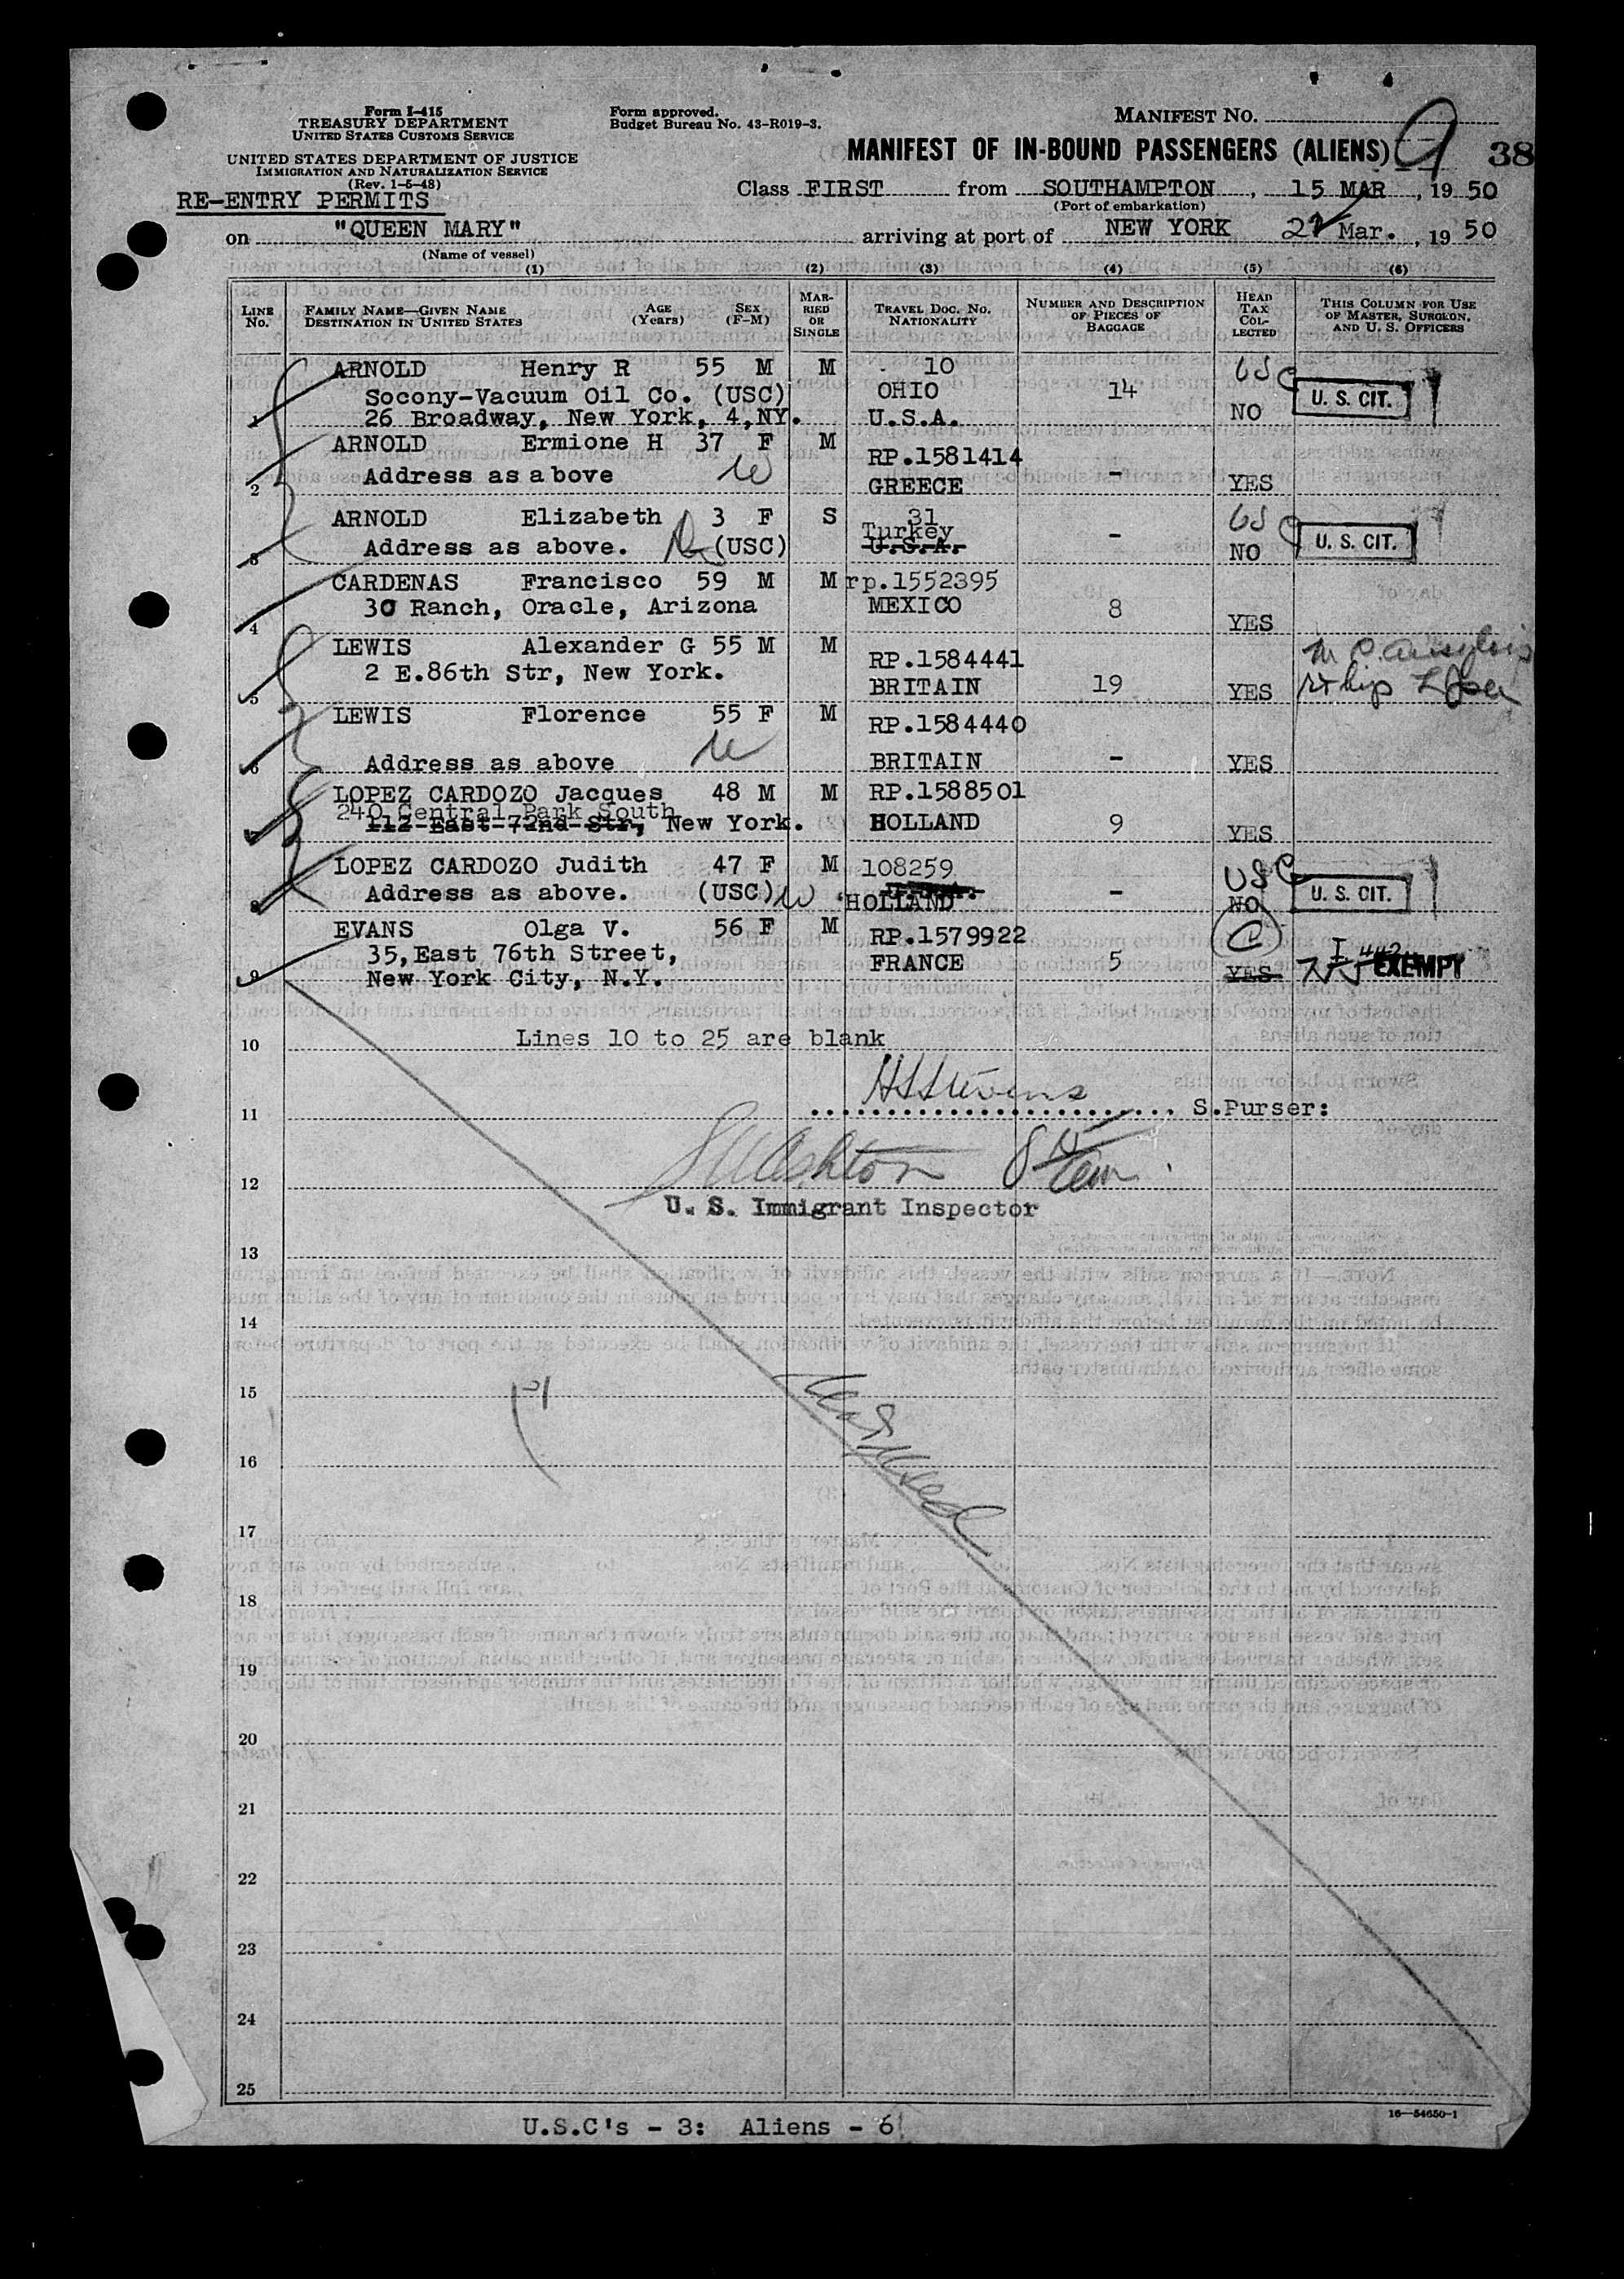 Form I-415
TREASURY DEPARTMENT
UNITED STATES CUSTOMS SERVICE
UNITED STATES DEPARTMENT OF JUSTICE
IMMIGRATION AND NATURALIZATION SERVICE
(Rev. 1-5-48)
RE-ENTRY PERMITS
Form approved.
Budget Bureau No. 43-R019-3.
MANIFEST NO.
9
38
MANIFEST OF IN-BOUND PASSENGERS (ALIENS)
Class FIRST from SOUTHAMPTON, 15 MAR, 1950
(Port of embarkation)
on "QUEEN MARY" arriving at port of NEW YORK Mar., 1950
(Name of vessel)
(1) (2) (3) (4) (5) (6)
LINE No. FAMILY NAME—GIVEN NAME DESTINATION IN UNITED STATES AGE (Years) SEX (F-M) MARRIED OR SINGLE TRAVEL DOC. NO. NATIONALITY NUMBER AND DESCRIPTION OF PIECES OF BAGGAGE HEAD TAX COLLECTED THIS COLUMN FOR USE OF MASTER, SURGEON, AND U. S. OFFICERS
ARNOLD Henry R 55 M M 10 USC
Socony-Vacuum Oil Co. (USC) OHIO 14 U. S. CIT.
1 26 Broadway, New York, 4, NY. U.S.A. NO
ARNOLD Ermione H 37 F M RP.1581414
2 Address as above W GREECE - YES
ARNOLD Elizabeth 3 F S 31 USC
Turkey
3 Address as above. (USC) U.S.A. - NO U. S. CIT.
CARDENAS Francisco 59 M M rp.1552395
4 30 Ranch, Oracle, Arizona MEXICO 8 YES
LEWIS Alexander G 55 M M RP.1584441
5 2 E.86th Str, New York. BRITAIN 19 YES
LEWIS Florence 55 F M RP.1584440
6 Address as above W BRITAIN - YES
LOPEZ CARDOZO Jacques 48 M M RP.1588501
240 Central Park South
7 112 East 72nd Str, New York. HOLLAND 9 YES
LOPEZ CARDOZO Judith 47 F M 108259 USC
8 Address as above. (USC) W HOLLAND - NO U. S. CIT.
EVANS Olga V. 56 F M RP.1579922 C
35, East 76th Street, FRANCE 5 EXEMPT
9 New York City, N.Y. YES
10 Lines 10 to 25 are blank
HStevens
11 S.Purser:
12
U. S. Immigrant Inspector
13
14
15
16
17
18
19
20
21
22
23
24
25
16—54650-1
U.S.C's - 3: Aliens - 6